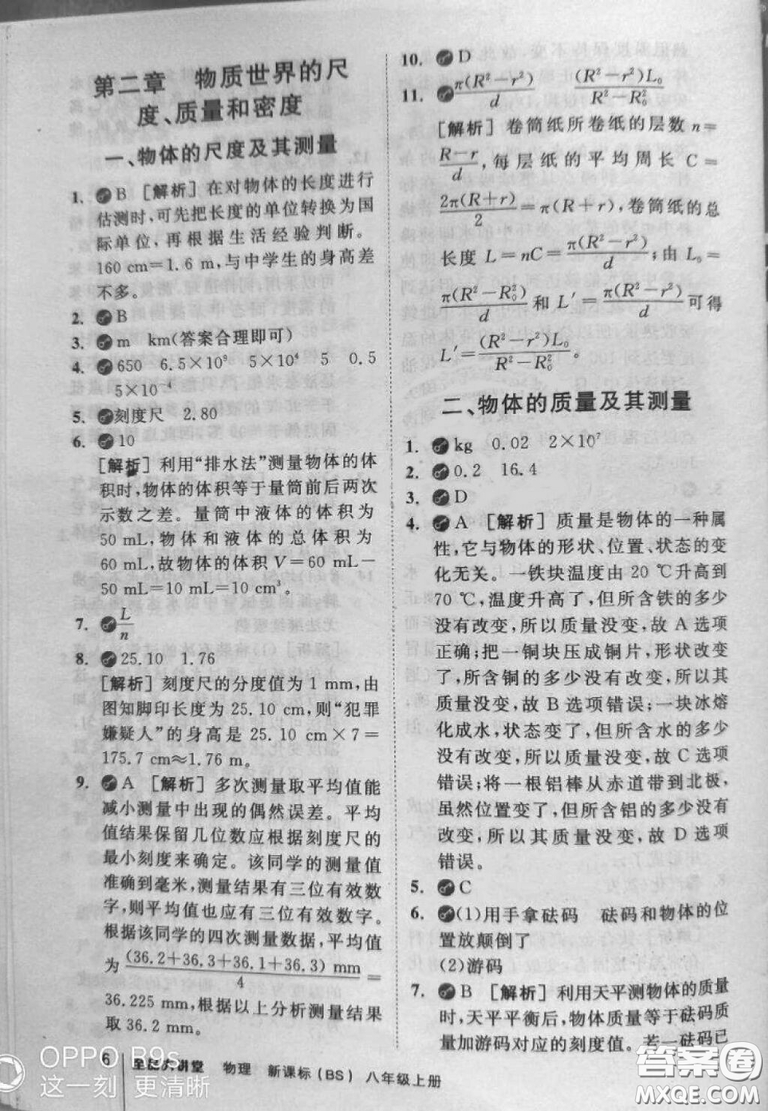 第二章 物质世界的尺
度、质量和密度
一、物体的尺度及其测量
1. B [解析]在对物体的长度进行
估测时,可先把长度的单位转换为国
际单位,再根据生活经验判断。
160 cm=1.6 m,与中学生的身高差
不多。
2. B
3. m km(答案合理即可)
4. 650 6.5×10⁸ 5×10⁴ 5 0.5
5×10⁻⁴
5. 刻度尺 2.80
6. 10
[解析]利用“排水法”测量物体的体
积时,物体的体积等于量筒前后两次
示数之差。量筒中液体的体积为
50 mL,物体和液体的总体积为
60 mL,故物体的体积V=60 mL-
50 mL=10 mL=10 cm³。
7. L/n
8. 25.10 1.76
[解析]刻度尺的分度值为1 mm,由
图知脚印长度为25.10 cm,则“犯罪
嫌疑人”的身高是25.10 cm×7=
175.7 cm≈1.76 m。
9. A [解析]多次测量取平均值能
减小测量中出现的偶然误差。平均
值结果保留几位数应根据刻度尺的
最小刻度来确定。该同学的测量值
准确到毫米,测量结果有三位有效数
字,则平均值也应有三位有效数字。
根据该同学的四次测量数据,平均值
为 (36.2+36.3+36.1+36.3) mm/4 =
36.225 mm,根据以上分析测量结果
取36.2 mm。
10. D
11. π(R²-r²)/d (R²-r²)L₀/(R²-R₀²)
[解析]卷筒纸所卷纸的层数n=
(R-r)/d,每层纸的平均周长C=
2π(R+r)/2=π(R+r),卷筒纸的总
长度L=nC=π(R²-r²)/d;由L₀=
π(R²-R₀²)/d和L′=π(R²-r²)/d可得
L′=(R²-r²)L₀/(R²-R₀²)。
二、物体的质量及其测量
1. kg 0.02 2×10⁷
2. 0.2 16.4
3. D
4. A [解析]质量是物体的一种属
性,它与物体的形状、位置、状态的变
化无关。一铁块温度由20 ℃升高到
70 ℃,温度升高了,但所含铁的多少
没有改变,所以质量不变,故A选项
正确;把一铜块压成铜片,形状改变
了,所含铜的多少没有改变,所以其
质量没变,故B选项错误;一块冰熔
化成水,状态变了,但所含水的多少
没有改变,所以质量没变,故C选项
错误;将一根铝棒从赤道带到北极,
虽然位置变了,但所含铝的多少没有
改变,所以其质量没变,故D选项
错误。
5. C
6. (1)用手拿砝码 砝码和物体的位
置放颠倒了
(2)游码
7. B [解析]利用天平测物体的质量
时,天平平衡后,物体质量等于砝码质
量与游码示数的和。若一砝码已
6 全程大讲堂 物理 新课标(BS) 八年级上册
OPPO R9s
这一刻 更清晰
答案圈